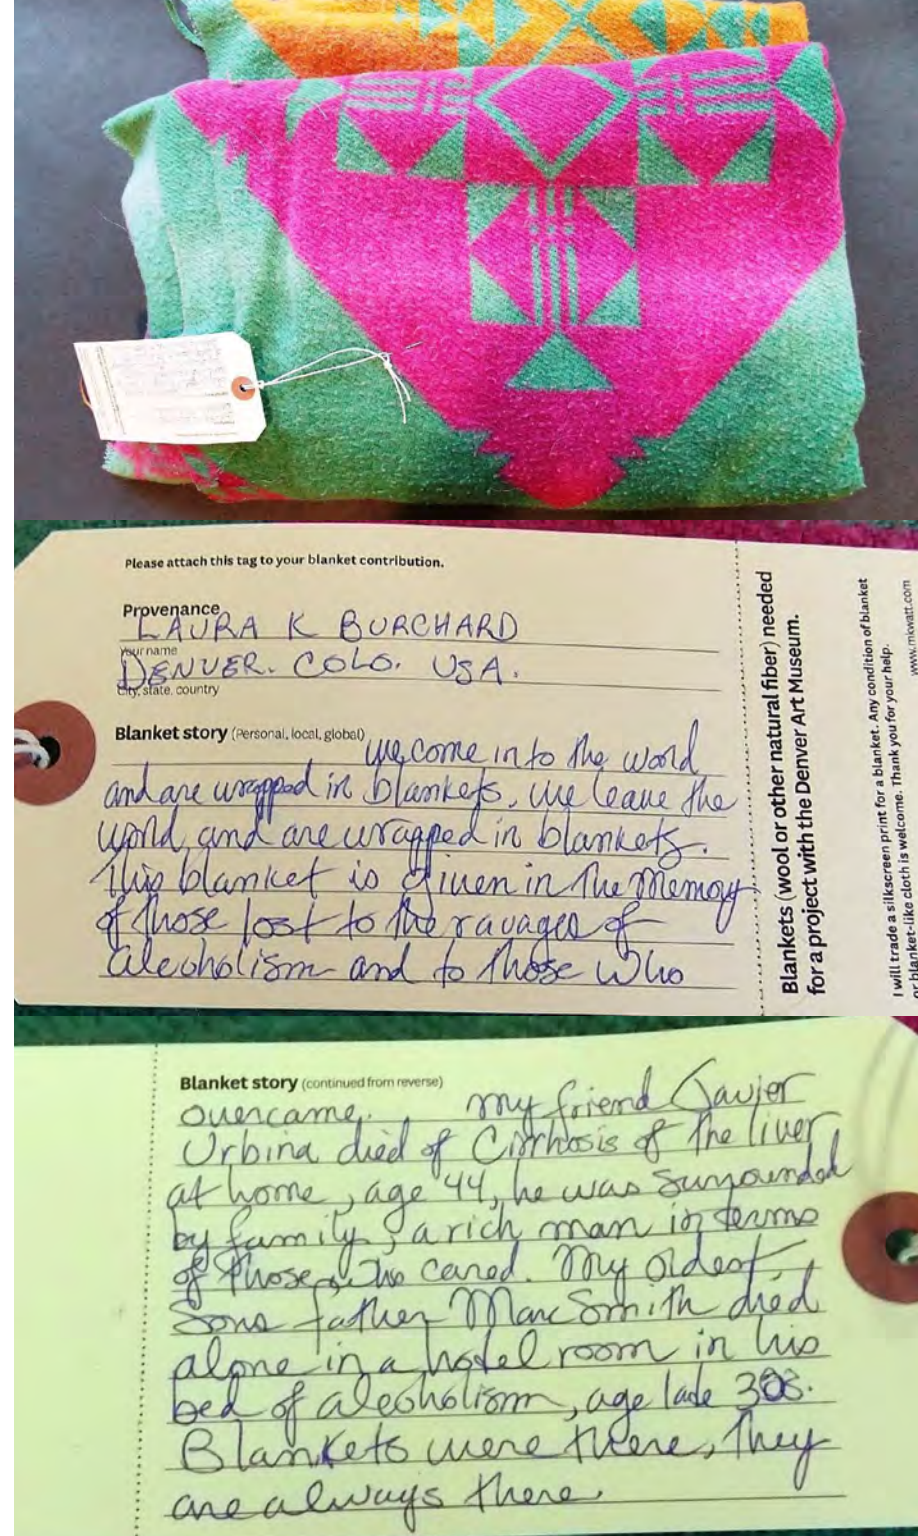 Please attach this tag to your blanket contribution.
Provenance
LAURA K BURCHARD
Your name
DENVER. COLO. USA.
City, state, country
Blanket story (Personal, local, global)
We come into the world
and are wrapped in blankets. We leave the
world, and are wrapped in blankets.
This blanket is given in the memory
of those lost to the ravages of
alcoholism and to those who
Blankets (wool or other natural fiber) needed
for a project with the Denver Art Museum.
I will trade a silkscreen print for a blanket. Any condition of blanket
or blanket-like cloth is welcome. Thank you for your help.
www.mkwatt.com
Blanket story (continued from reverse)
overcame. My friend Javier
Urbina died of Cirrhosis of the liver,
at home, age 44, he was surrounded
by family, a rich man in terms
of those who cared. My oldest
Sons father Marc Smith died
alone in a hotel room in his
bed of alcoholism, age late 30s.
Blankets were there, they
are always there.